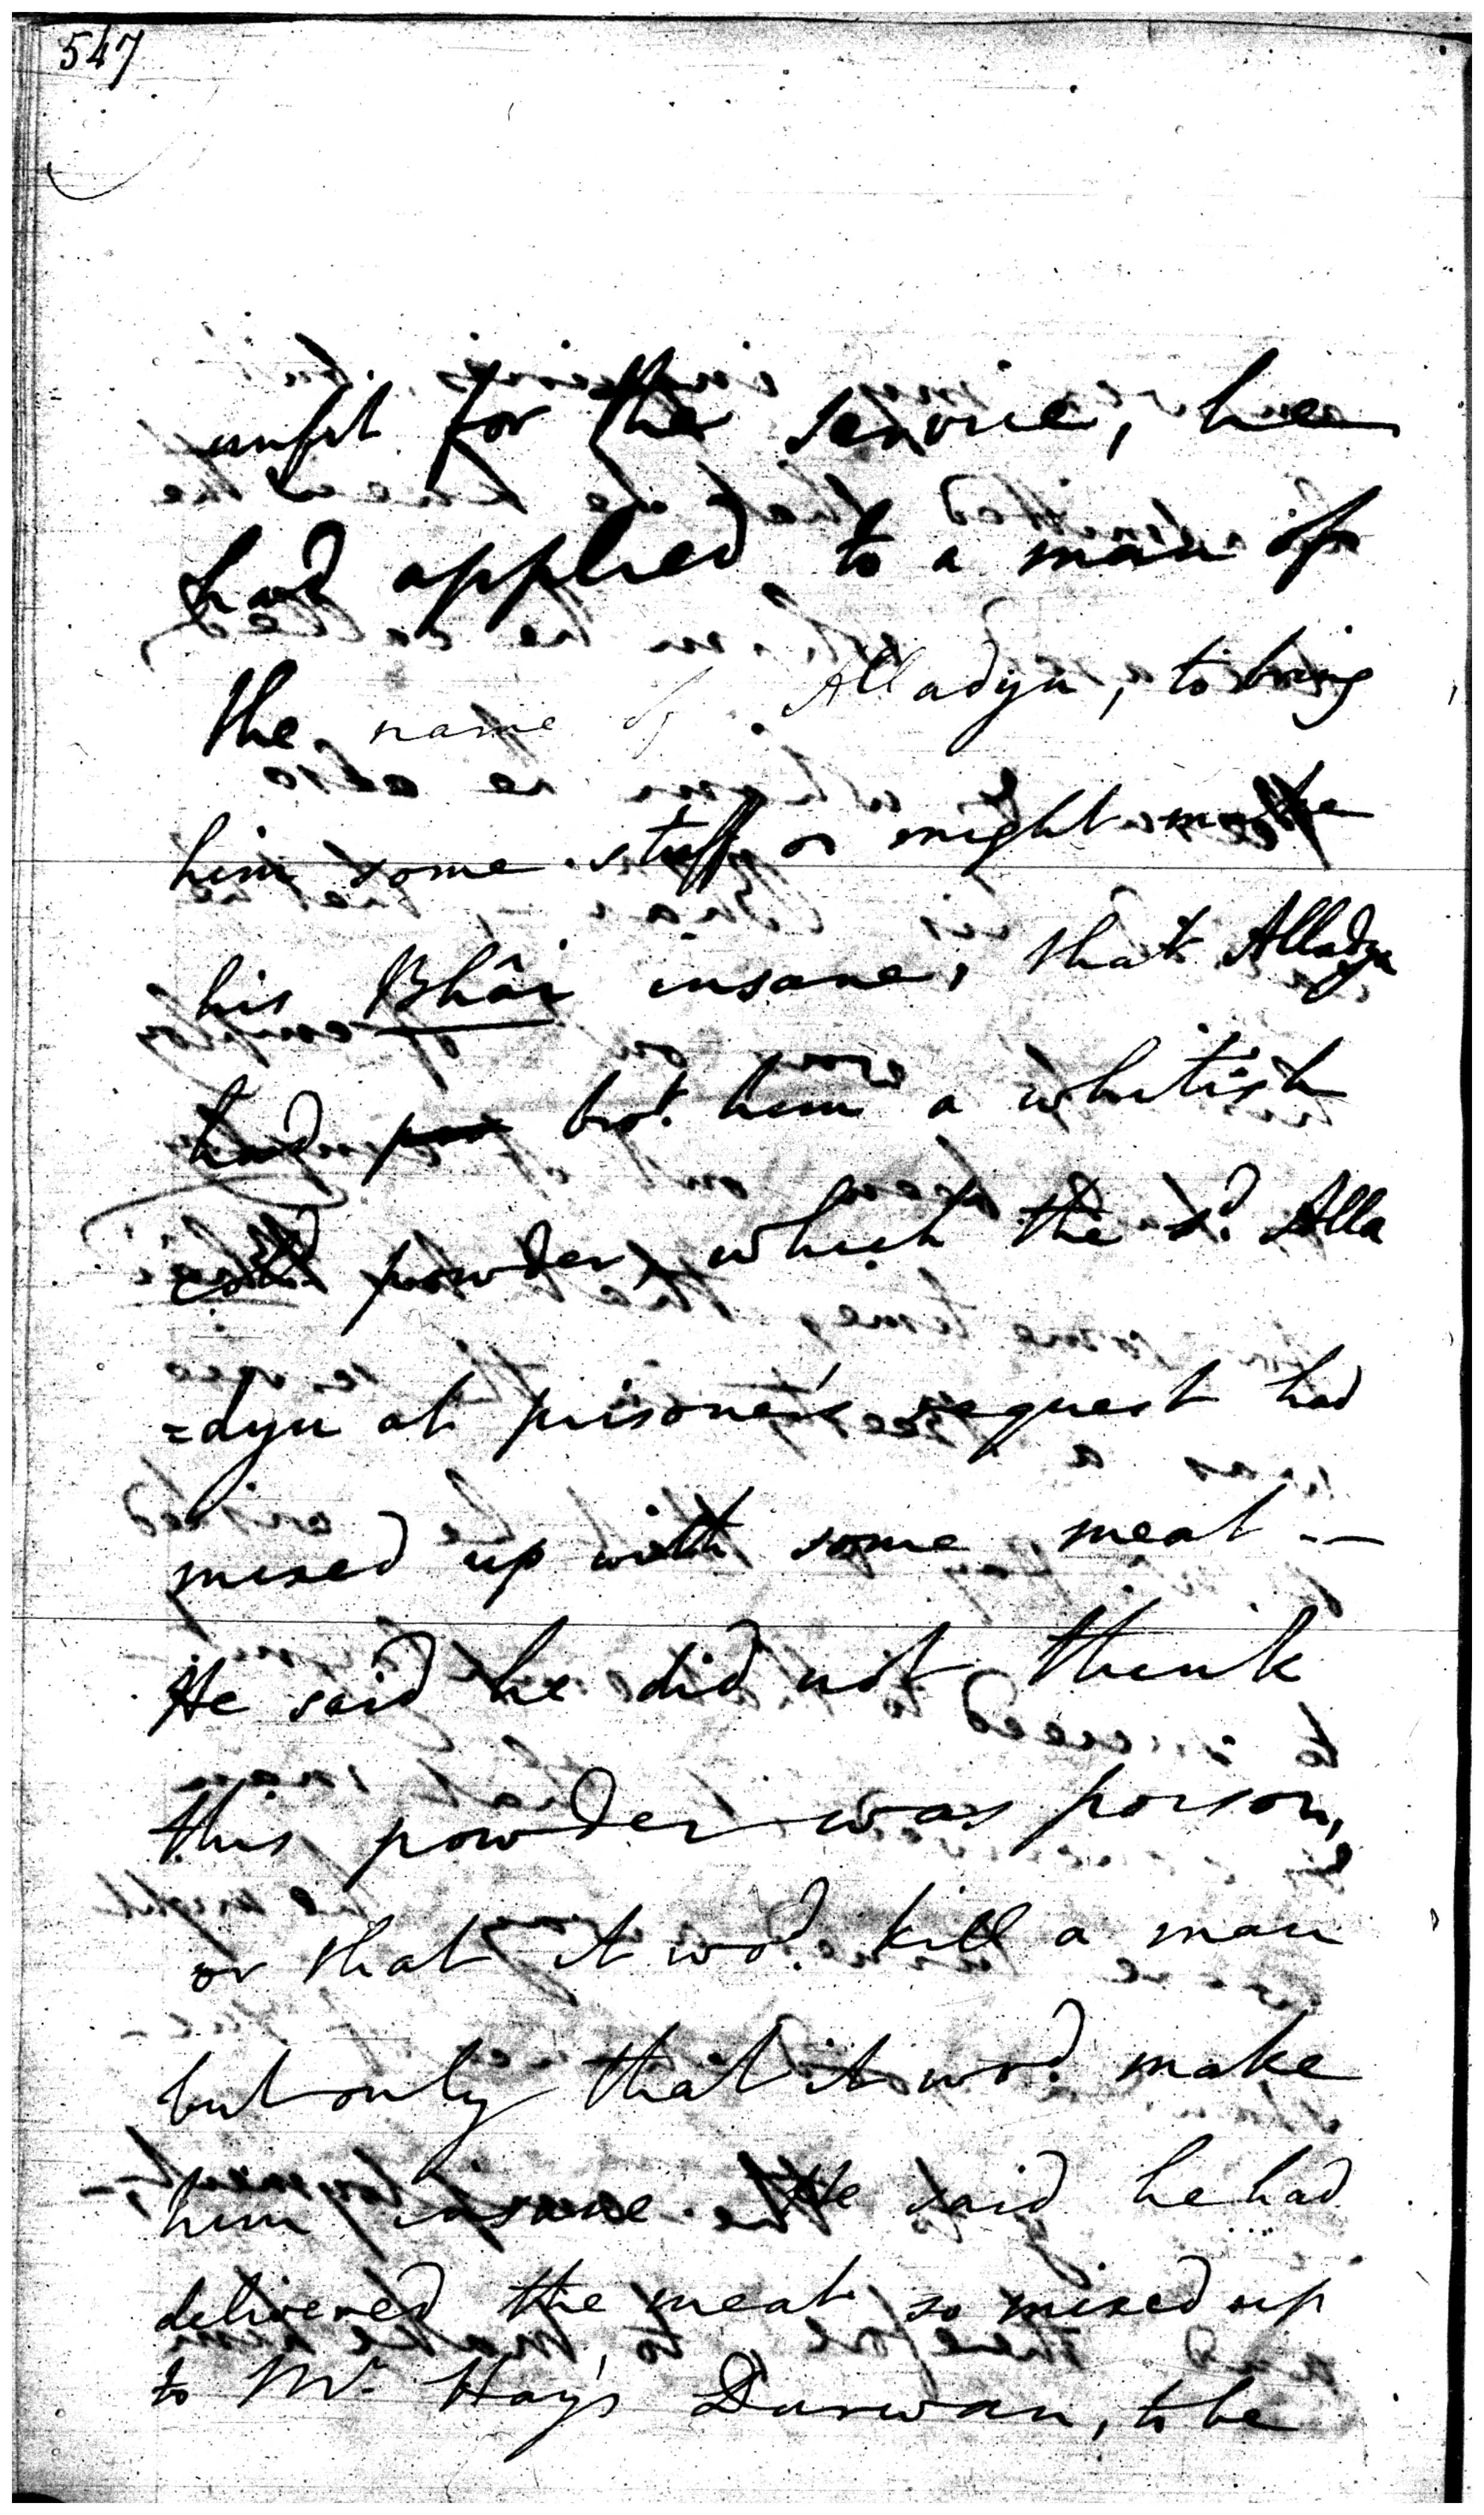 547
unfit for the service, he
had applied to a man of
the name of Alladyn, to bring
him some stuff as might make
his Bhâi insane, that Alladyn
had brot. him a whitish
powder, which the sd. Alla
=dyn at prisoner's request had
mixed up with some meat —
He said he did not think
this powder was poison,
or that it wod. kill a man
but only that it wod. make
him insane. He said he had
delivered the meat so mixed up
to Mr. Hay's Durwan, to be